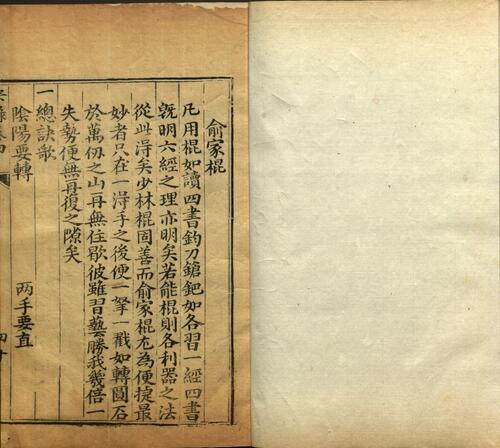 俞家棍
凡用棍如讀四書鈎刀鎗鈀如各習一經四書
既明六經之理亦明矣若能棍則各利器之法
從此得矣少林棍固善而俞家棍尤為便捷最
妙者只在一得手之後便一拏一戳如轉圓石
於萬仞之山再無住歇彼雖習藝勝我幾倍一
失勢便無再復之隙矣
一總訣歌
陰陽要轉 两手要直